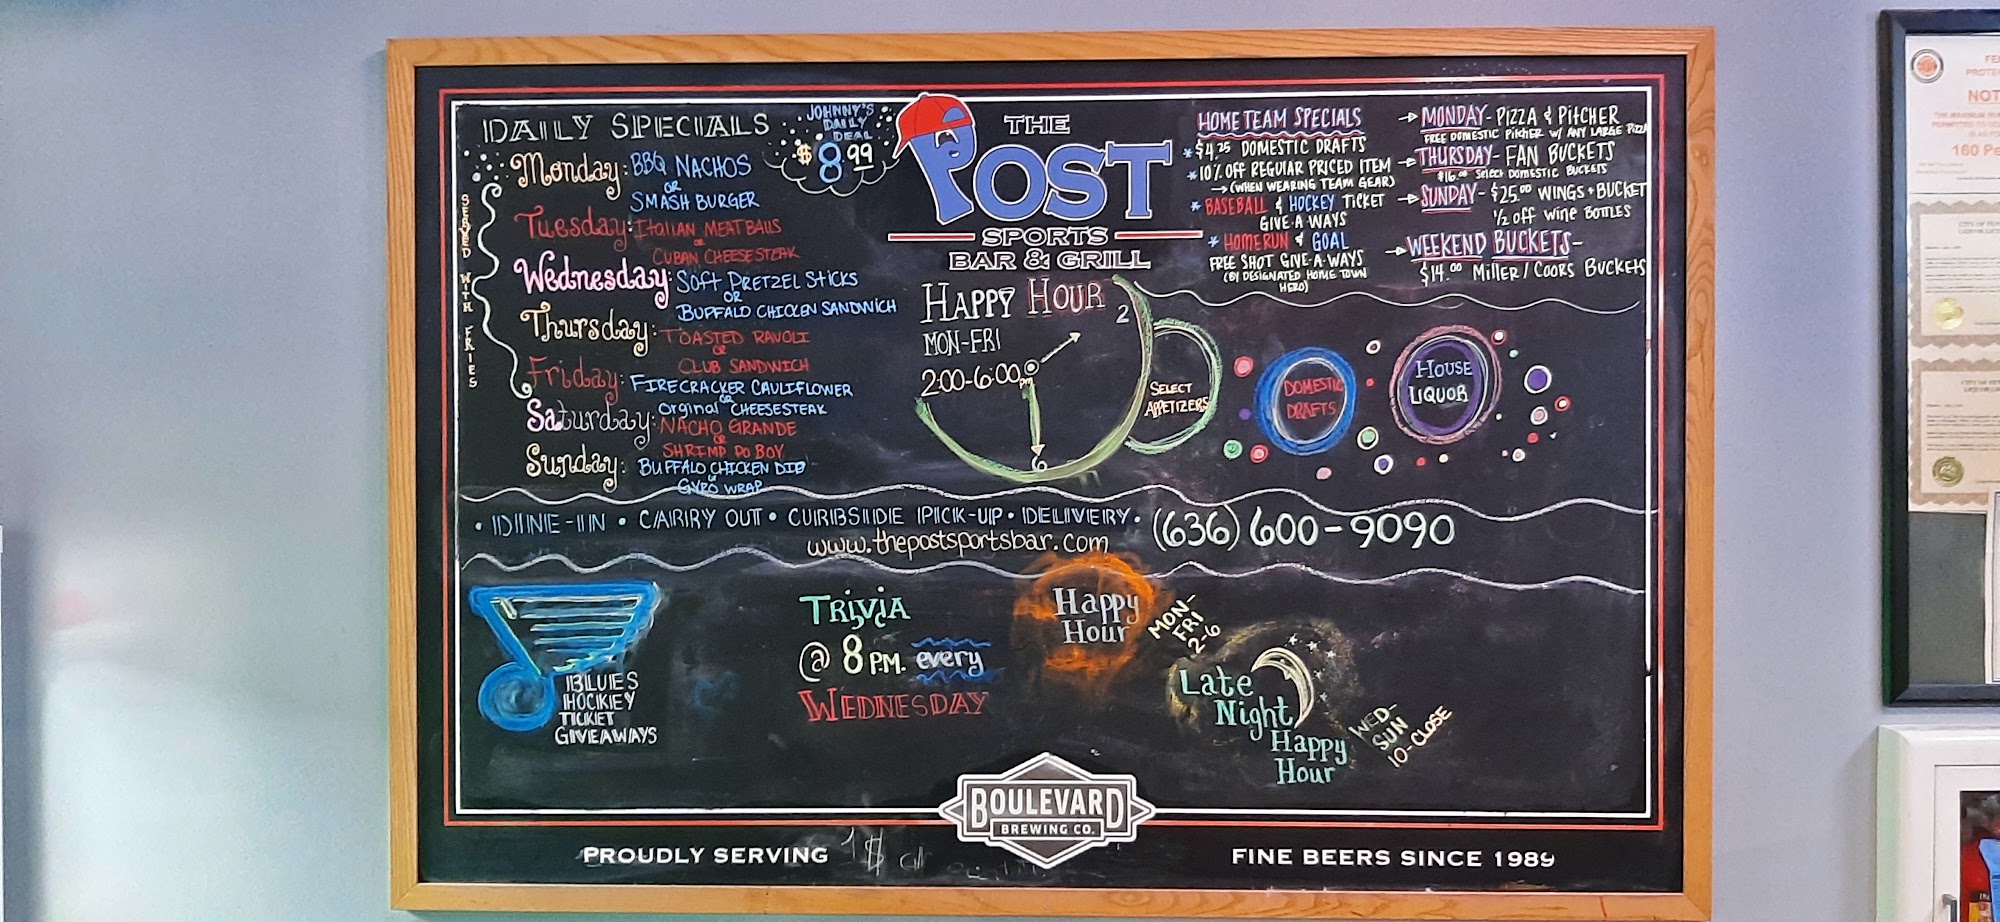 DAILY SPECIALS
JOHNNY'S
DAILY
DEAL
$8.99
SERVED WITH FRIES
Monday: BBQ NACHOS
OR
SMASH BURGER
Tuesday: ITALIAN MEATBALLS
OR
CUBAN CHEESESTEAK
Wednesday: SOFT PRETZEL STICKS
OR
BUFFALO CHICKEN SANDWICH
Thursday: TOASTED RAVOLI
OR
CLUB SANDWICH
Friday: FIRECRACKER CAULIFLOWER
OR
Orginal CHEESESTEAK
Saturday: NACHO GRANDE
OR
SHRIMP PO BOY
Sunday: BUFFALO CHICKEN DIP
OR
GYRO WRAP
THE
POST
SPORTS
BAR & GRILL
HAPPY HOUR
MON-FRI
2:00-6:00pm
2
6
SELECT
APPETIZERS
DOMESTIC
DRAFTS
HOUSE
LIQUOR
HOME TEAM SPECIALS
* $4.25 DOMESTIC DRAFTS
* 10% OFF REGULAR PRICED ITEM
→ (WHEN WEARING TEAM GEAR)
* BASEBALL & HOCKEY TICKET
GIVE-A-WAYS
* HOMERUN & GOAL
FREE SHOT GIVE-A-WAYS
(BY DESIGNATED HOME TOWN
HERO)
→ MONDAY- PIZZA & PITCHER
FREE DOMESTIC PITCHER W/ ANY LARGE PIZZA
→ THURSDAY- FAN BUCKETS
$16.00 Select DOMESTIC BUCKETS
→ SUNDAY- $25.00 WINGS + BUCKET
1/2 off wine BOTTLES
→ WEEKEND BUCKETS-
$14.00 Miller / Coors BUCKETS
• DINE-IN • CARRY OUT • CURBSIDE PICK-UP • DELIVERY • (636) 600-9090
www.thepostsportsbar.com
BLUES
HOCKEY
TICKET
GIVEAWAYS
TRIVIA
@ 8 P.M. every
WEDNESDAY
Happy
Hour
MON-
FRI
2-6
Late
Night
Happy
Hour
WED-
SUN
10-CLOSE
BOULEVARD
BREWING CO.
PROUDLY SERVING
FINE BEERS SINCE 1989
NOT
160 Pe